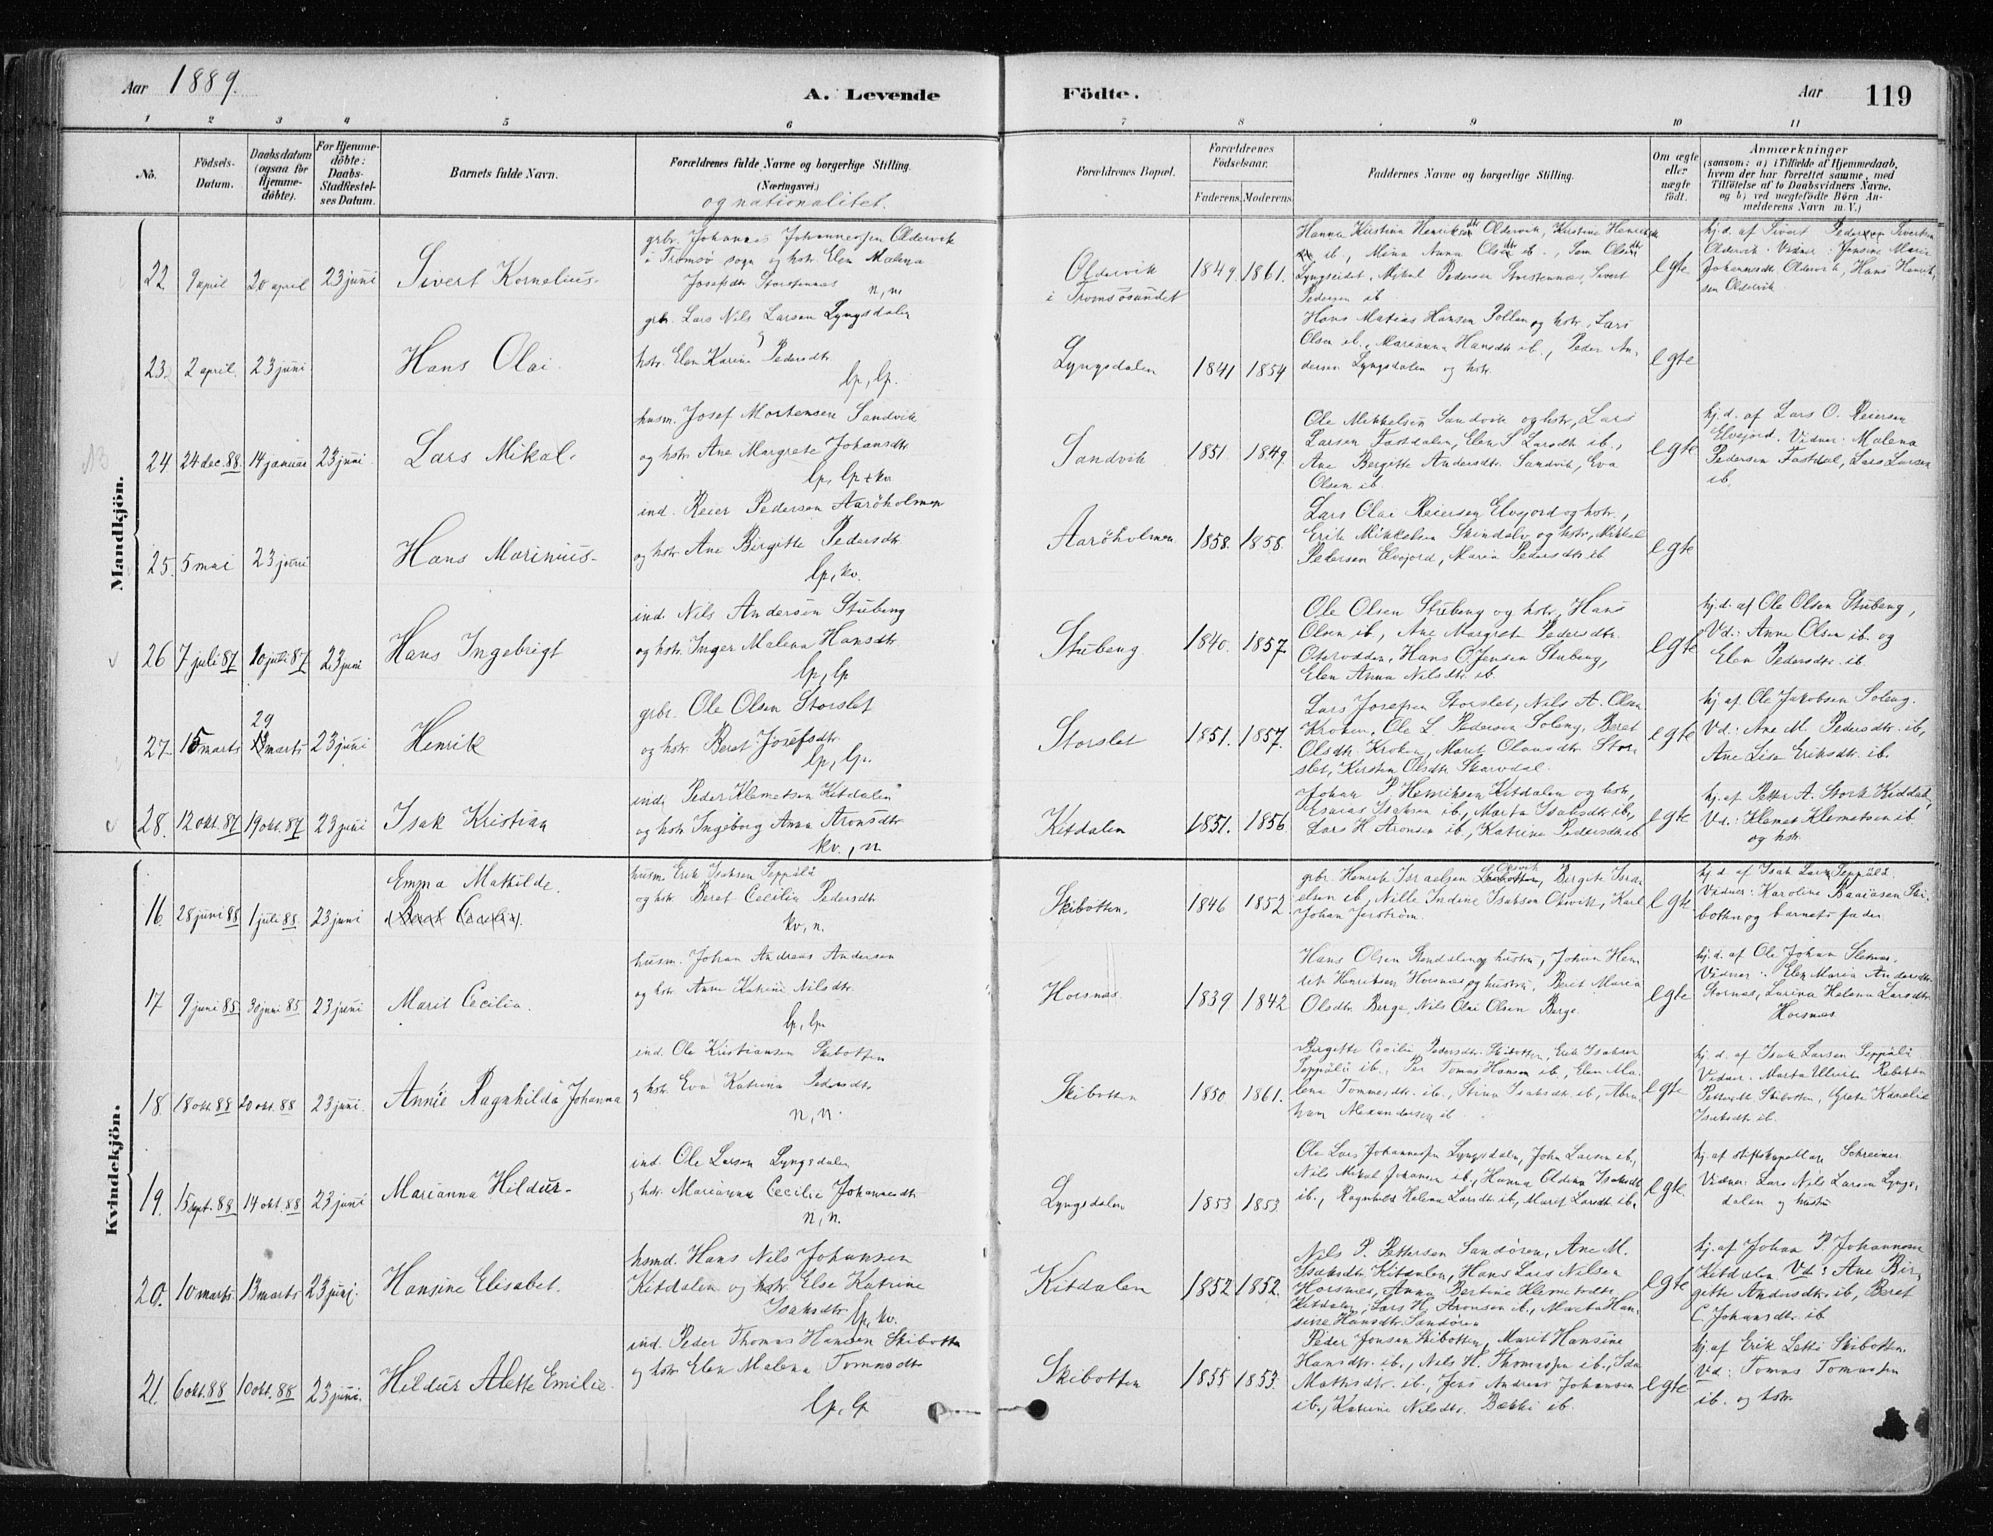 Aar 1889.
A. Levende
Födte.
Aar
119
1 2 3 4 5 6 7 8 9 10 11
No.
Födsels-Datum.
Daabsdatum (ogsaa for Hjemme-döbte).
For Hjemme-döbte: Daabs-Stadfæstel-ses Datum.
Barnets fulde Navn.
Forældrenes fulde Navne og borgerlige Stilling.
(Næringsvei.)
og nationalitet.
Forældrenes Bopæl.
Forældrenes Födselsaar.
Faderens. Moderens.
Faddernes Navne og borgerlige Stilling.
Om ægte eller uægte födt.
Anmærkninger
(saasom: a) i Tilfælde af Hjemmedaab,
hvem der har forrettet samme, med
Tilföielse af to Daabsvidners Navne,
og b) ved uægtefödte Börn An-
melderens Navn m. V.)
Mandkjön.
22. 9 april 20 april 23 juni Sivert Kornelius.
grbr. Johannes Johannessen Oldervik
i Tromsö sogn og hstr. Elen Malena
Josefsdtr Storstennes n, n.
Oldervik
i Tromsösundet
1849 1861.
ib., Mikal Pedersen Storstennes, Sivert
Pedersen ib
egte
hj.d. af Sivert
Oldervik. Vidner: Jensine Marie
Johannesdtr Oldervik, Hans Henrik-
sen Oldervik
23. 2 april. 23 juni Hans Olai.
grbr. Lars Nils Larsen Lyngsdalen
hstr. Elen Karine Pedersdtr
lp, lp.
Lyngsdalen 1841 1854
Hans Matias Hansen Pollen og hstr., Lars
Olsen ib., Marianna Hansdtr ib., Peder An-
dersen Lyngsdalen og hstr.
egte
24. 24 dec. 88 14 januar 23 juni Lars Mikal.
husm. Josef Mortensen Sandvik
og hstr. Ane Margrete Johansdtr
lp, lp+kv
Sandvik 1851. 1849.
Ole Mikkelsen Sandvik og hstr., Lars
Larsen Fastdalen, Elen S Larsdtr ib.,
Ane Bergitte Andersdtr. Sandvik, Eva
Olsen ib
egte
hj.d. af Lars O. Reiersen
Elvejord. Vidner: Malena
Pedersen Fastdal, Lars Larsen
ib.
25. 5 mai 23 juni Hans Marinius.
ind. Reier Pedersen Aaröholmen
og hstr. Ane Birgitte Pedersdtr.
lp, kv.
Aaröholmen 1858. 1858.
Lars Olai Reiersen Elvejord og hstr.,
Erik Mikkelsen Skindalv og hstr., Mikkel
Pedersen Elvejord, Maria Pedersdtr ib
egte
26 7 juli 87 10 juli 87 23 juni Hans Ingebrigt
ind. Nils Andersen Stubeng
og hstr. Inger Malena Hansdtr.
lp, lp
Stubeng 1840. 1857.
Ole Olsen Stubeng og hstr., Hans
Olsen ib., Ane Margrete Pedersdtr.
Oterodden, Hans O. Jensen Stubeng,
Elen Anna Nilsdtr. ib.
egte
hj.d. af Ole Olsen Stubeng,
Vd: Anne Olsen ib. og
Elen Pedersdtr. ib.
27. 15 marts 29 marts 23 juni Henrik
grbr. Ole Olsen Storslet
og hstr. Beret Josefsdtr.
lp, lp.
Storslet 1851. 1857.
Lars Josefsen Storslet, Nils A. Olsen
Kroken, Ole L. Pedersen Soleng, Beret
Olsdtr. Kroken, Maret Olausdtr. Stor-
slet, Kirsten Olsdtr Skarvdal.
egte
hj. af Ole Jakobsen Soleng.
Vd: Ane M. Pedersdtr. ib.,
Ane Lisa Eriksdtr. ib.
28. 12 okt. 87 19 okt. 87 23 juni Isak Kristian
ind. Peder Klemetsen Kitdalen
og hstr. Ingeborg Anna Aronsdtr
kv., n.
Kitdalen 1851. 1856
Johan P. Henriksen Kitdalen og hstr.,
Esaias Isaksen ib., Marta Isaksdtr ib.,
Lars H. Aronsen ib., Katrine Pedersdtr ib
egte
hj. af Petter A. Stork Kitdal,
Vd.: Klemet Klemetsen ib
og hstr.
Kvindekjön.
16. 28 juni 88 1 juli 88 23 juni Emma Mathilde.
(Beret Cecilia).
husm. Erik Isaksen Seppälä
og hstr. Beret Cecilia Pedersdtr
kv, n.
Skibotten. 1846 1852
grbr. Henrik Israelsen Olsvik, Bergite Isra-
elsen ib, Nille Indine Isaksen Olsvik, Karl
Johan Jerström.
egte
hj.d. af Isak Lars. Seppälä.
Vidner: Karoline Baaiasen Ski-
botten og barnets fader
17 9 juni 85 30 juni 85 23 juni Marit Cecilia.
husm. Johan Andreas Andersen
og hstr. Anne Katrine Nilsdtr.
lp, lp
Horsnæs. 1839 1842
Hans Olsen Rendalen og hustru, Johan Hen-
rik Henriksen Horsnæs og hustru, Beret Maria
Olsdtr Berge, Nils Olai Olsen Berge.
egte
hj.d. af Ole Johan Sletnes.
Vidner: Elen Maria Andersdtr
Stornæs, Lurina Helena Larsdtr
Horsnæs
18. 18 okt. 88 20 okt. 88 23 juni. Annie Ragnhilda Johanna
ind. Ole Kristiansen Skibotten
og hstr. Eva Katrina Pedersdtr
n, n.
Skibotten 1850 1861.
Bergitte Cecilie Pedersdtr. Skibotten, Erik Isaksen
Seppälä ib., Per Tomas Hansen ib, Elen Ma-
lena Tommesdtr. ib., Stina Isaksdtr. ib, Abra-
ham Alexandersen ib
egte
hj. d. af Isak Larsen Seppälä
Vidner: Marta Ulrika Rebekka
Pettersdtr Skibotten, Grete Kornelia
Isaksdtr ib.
19. 15 sept. 88 14 okt. 88 23 juni Marianna Hildur.
ind. Ole Larsen Lyngsdalen
og hstr. Marianna Cecilie Johannesdtr.
n, n.
Lyngsdalen 1853 1853
Ole Lars Johannessen Lyngsdalen, John Larsen ib.,
Nils Mikal Johansen ib., Hanna Oldina Isaksdtr
ib., Ragnhild Helena Larsdtr ib, Marit Larsdtr. ib.
egte.
hj. af stiftskapellan Schreiner
Vidner: Lars Nils Larsen Lyngs-
dalen og hustru
20. 10 marts. 13 marts 23 juni. Hansine Elisabet.
hsmd. Hans Nils Johansen
Kitdalen og hstr. Else Katrine
Isaksdtr. lp, kv.
Kitdalen 1852 1852.
Nils P. Pettersen Sandören, Ane M.
Isaksdtr. Kitdalen, Hans Lars Nilsen
Horsnes, Anna Bertine Klemetsdtr
Kitdalen, Lars H. Aronsen ib., Marta Han-
sine Hansdtr. Sandören
egte
hj. af Johan P. Johannesen
Kitdalen. Vd: Ane Bir-
gette Andersdtr. ib, Beret
C. Johansdtr. ib
21. 6 okt. 88 10 okt. 88 23 juni. Hildur Alette Emilie.
ind. Peder Thomas Hansen Skibotten
og hstr. Elen Malena Tomasdtr
lp, lp
Skibotten 1855 1853.
Peder Jonsen Skibotten, Marit Hansine
Hansdtr. ib., Nils H. Thomassen ib., Ida
Mathsdtr. ib., Jens Andreas Johansen
ib., Katrine Nilsdtr. Bækki ib.
egte
hj. af Erik Letti Skibotten.
Vd: Tomas Tomassen
ib. og hstr.